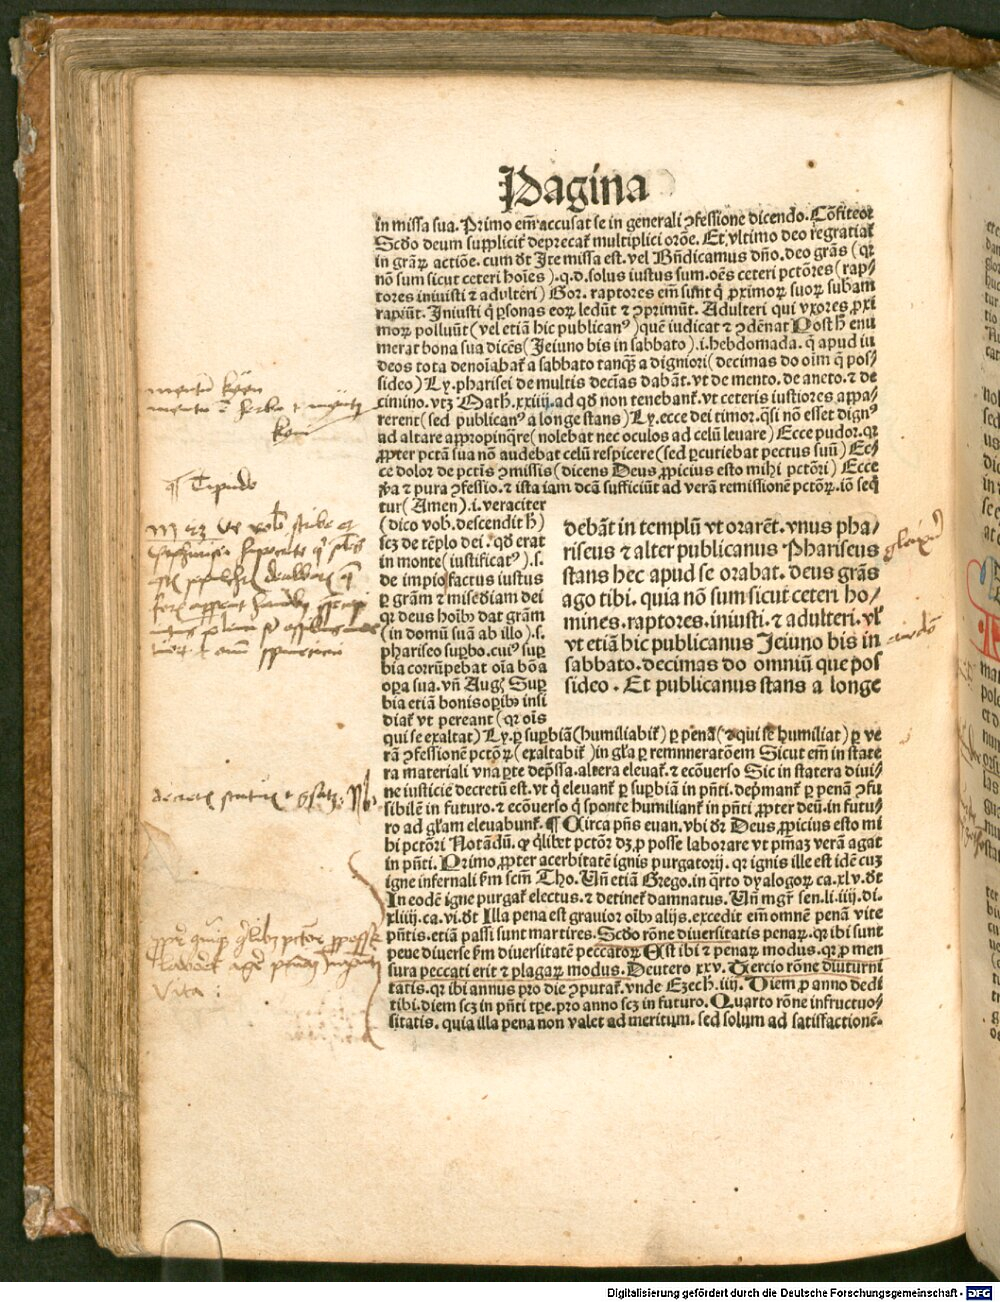 Pagina
in missa sua. Primo em̄ accusat se in generali ꝯfessione dicendo. Cōfiteor
Scďo deum suppliciť deprecať multiplici orōe. Et vltimo deo regratiať
in grāꝝ actiōe. cum dr̄ Ite missa est. vel Bn̄dicamus dn̄o. deo grās (qꝛ
nō sum sicut ceteri hoīes) .q.d. solus iustus sum. oēs ceteri pctōres (rap⸗
tores iniusti ⁊ adulteri) Gor. raptores em̄ sunt q̇ ꝓximoꝝ suoꝝ subam
rapiūt. Iniusti q̇ ꝑsonas eoꝝ ledūt ⁊ ꝯprimūt. Adulteri qui vxores ꝓxi
moꝝ polluūt (vel etiā hic publicanꝰ) quē iudicat ⁊ ꝯdēnat Post h̄ enu
merat bona sua dicēs (Jeiuno bis in sabbato) .i. hebdomada. q̄ apud iu
deos tota denoīabať a sabbato tanqꝫ a digniori (decimas do oīm q̄ pos⸗
sideo) Ly. pharisei de multis decīas dabāt. vt de mento. de aneto. ⁊ de
cimino. vtꝫ Math. xxiij. ad qď non tenebanť. vt ceteris iustiores appa⸗
rerent (sed publicanꝰ a longe stans) Ly. ecce dei timor. q̄si nō esset dignꝰ
ad altare appropinq̄re (nolebat nec oculos ad celū leuare) Ecce pudor. qꝛ
ꝓpter pctā sua nō audebat celū respicere (sed ꝑcutiebat pectus suū) Ec⸗
ce dolor de pctīs ꝯmissis (dicens Deus ꝓpicius esto mihi pctōri) Ecce
ṽa ⁊ pura ꝯfessio. ⁊ ista iam dcā sufficiūt ad verā remissionē pctōꝝ. iō seq̄
tur (Amen) .i. veraciter
(dico vob̄. descendit h̄)
scꝫ de tēplo dei. qď erat
in monte (iustificatꝰ) .s.
de impio factus iustus
ꝑ grām ⁊ mīsediam dei
qꝛ deus hoīb̄ dat grām
(in domū suā ab illo) .s.
phariseo suꝑbo. cuiꝰ suꝑ
bia corrūpebat oīa bōa
oꝑa sua. vn̄ Augꝰ Suꝑ
bia etiā bonis oꝑibꝰ insi
diať vt pereant (qꝛ oīs
debāt in templū vt orarēt. vnus pha⸗
riseus ⁊ alter publicanus. Phariseus
stans hec apud se orabat. deus grās
ago tibi. quia nō sum sicut ceteri ho⸗
mines. raptores. iniusti. ⁊ adulteri. vl̓
vt etiā hic publicanus Jeiuno bis in
sabbato. decimas do omniū que pos
sideo. Et publicanus stans a longe
qui se exaltat) Ly. ꝑ suꝑbiā (humiliabiť) ꝑ penā (⁊ qui se humiliat) ꝑ ve
rā ꝯfessionē pctōꝝ (exaltabiť) in gl̄a ꝑ remnneratōem Sicut em̄ in state
ra materiali vna ꝑte depͥssa. altera eleuať. ⁊ ecōuerso Sic in statera diui⸗
ne iusticie decretū est. vt q̇ eleuanť ꝑ suꝑbiā in pn̄ti. dep̄manť ꝑ penā ꝯfu
sibilē in futuro. ⁊ ecōuerso q̇ sponte humilianť in pn̄ti ꝓpter deū. in futu⸗
ro ad gl̄am eleuabunť. ¶ Circa pn̄s euan. vbi dr̄ Deus ꝓpicius esto mi
hi pctōri Notādū. ꝙ q̇libet pctōr dꝫ ꝓ posse laborare vt pn̄iaꝫ verā agat
in pn̄ti. Primo ꝓpter acerbitatē ignis purgatorij. qꝛ ignis ille est idē cuꝫ
igne infernali ẜm scm̄ Tho. Vn̄ etiā Grego. in q̇rto dyalogoꝝ ca. xlv. dt̄
In eodē igne purgať electus. ⁊ detineť damnatus. Vn̄ mgr̄ sen. li. iiij. di.
xliiij. ca. vi. dt̄ Illa pena est grauior oīb̄ alijs. excedit em̄ omnē penā vite
pn̄tis. etiā passi sunt martires. Scďo rōne diuersitatis penaꝝ. qꝛ ibi sunt
pene diuerse ẜm diuersitatē peccatoꝝ Est ibi ⁊ penaꝝ modus. qꝛ ꝓ men
sura peccati erit ⁊ plagaꝝ modus. Deutero xxv. Tercio rōne diuturni
tatis. qꝛ ibi annus pro die ꝯputať. vnde Ezech. iiij. Diem ꝓ anno dedi
tibi. diem scꝫ in pn̄ti tꝑe. pro anno scꝫ in futuro. Quarto rōne infructuo⸗
sitatis. quia illa pena non valet ad meritum. sed solum ad satisfactionē.
Digitalisierung gefördert durch die Deutsche Forschungsgemeinschaft - DFG